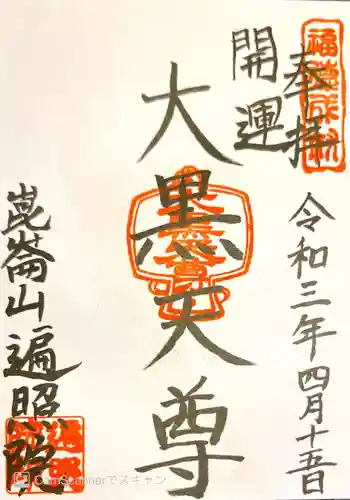 奉拝
開運
令和三年四月十五日
大黒天尊
崑崙山遍照院
CamScannerでスキャン